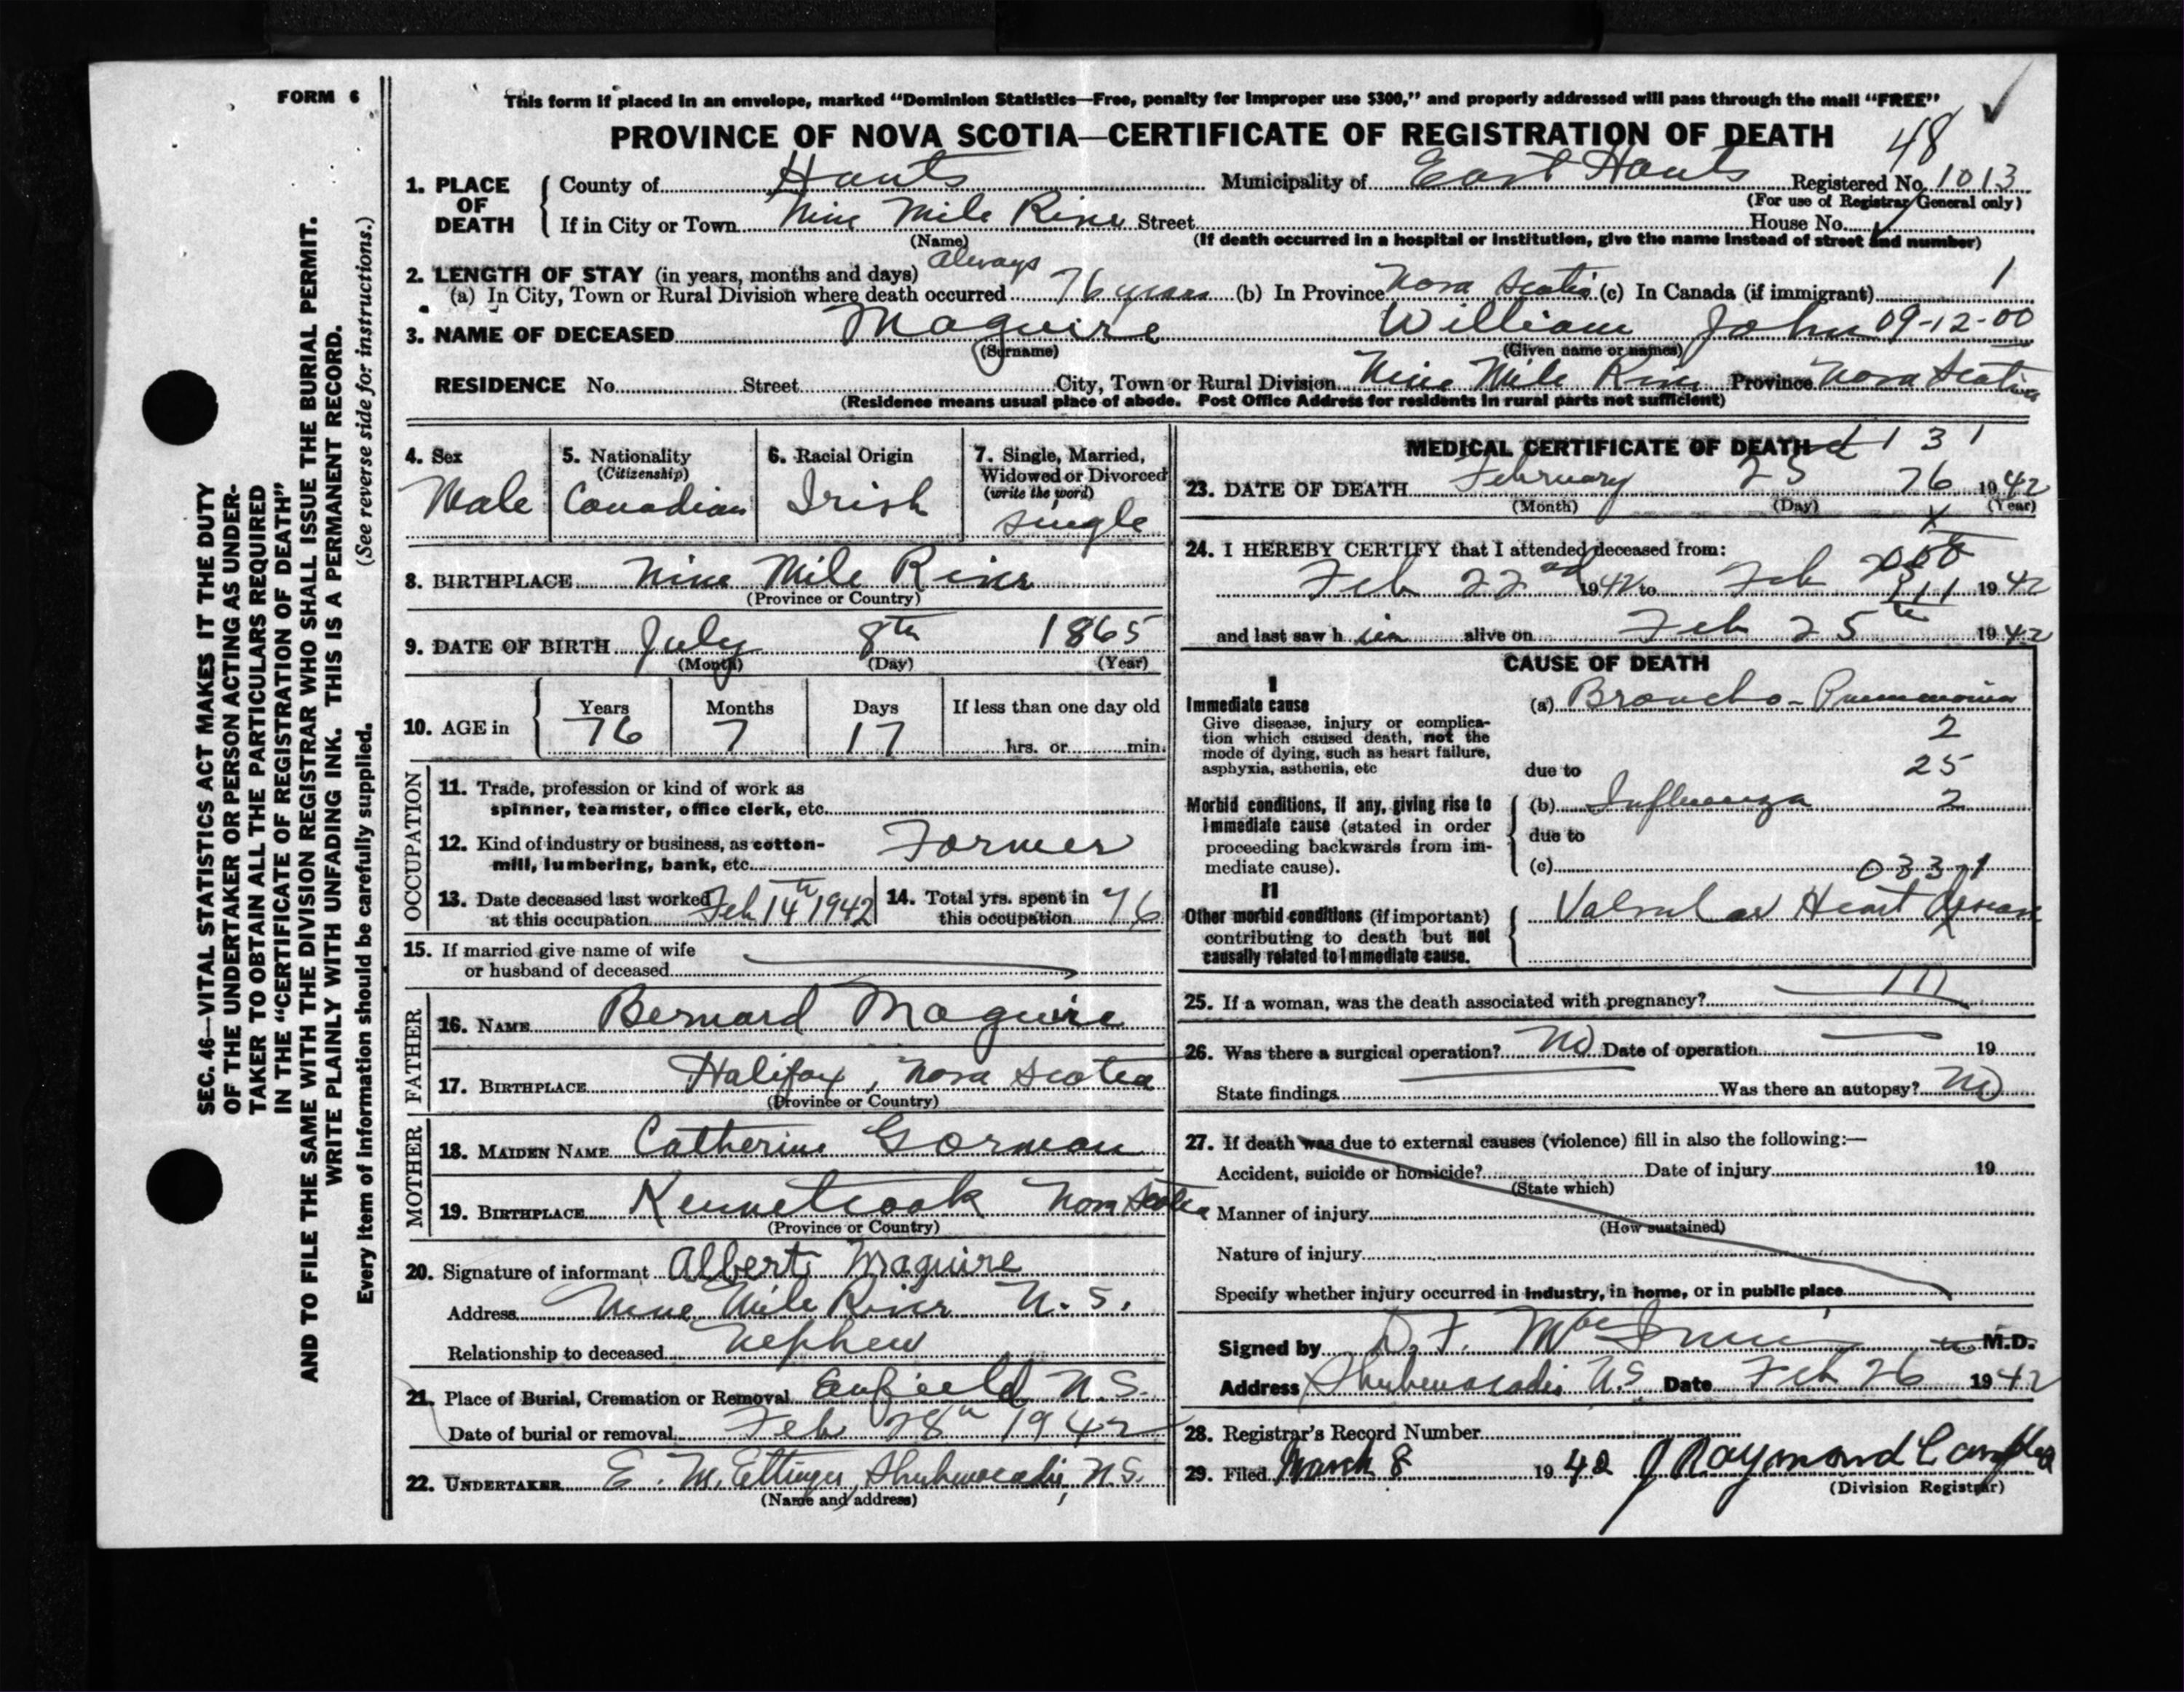 FORM 6
This form if placed in an envelope, marked "Dominion Statistics—Free, penalty for improper use $300," and properly addressed will pass through the mail "FREE"
PROVINCE OF NOVA SCOTIA—CERTIFICATE OF REGISTRATION OF DEATH
48
1. PLACE OF DEATH County of Hants Municipality of East Hants Registered No. 1013
(For use of Registrar General only)
If in City or Town Nine Mile River Street House No.
(Name) (If death occurred in a hospital or institution, give the name instead of street and number)
2. LENGTH OF STAY (in years, months and days) always
(a) In City, Town or Rural Division where death occurred 76 years (b) In Province Nova Scotia (c) In Canada (if immigrant) 1
3. NAME OF DECEASED Maguire William John 09-12-00
(Surname) (Given name or names)
RESIDENCE No. Street City, Town or Rural Division Nine Mile River Province Nova Scotia
(Residence means usual place of abode. Post Office Address for residents in rural parts not sufficient)
4. Sex Male
5. Nationality (Citizenship) Canadian
6. Racial Origin Irish
7. Single, Married, Widowed or Divorced (write the word) Single
8. BIRTHPLACE Nine Mile River
(Province or Country)
9. DATE OF BIRTH July 8th 1865
(Month) (Day) (Year)
10. AGE in Years 76 Months 7 Days 17 If less than one day old
hrs. or min.
OCCUPATION
11. Trade, profession or kind of work as
spinner, teamster, office clerk, etc.
12. Kind of industry or business, as cotton-
mill, lumbering, bank, etc. Farmer
13. Date deceased last worked at this occupation Feb 14th 1942
14. Total yrs. spent in this occupation 76
15. If married give name of wife
or husband of deceased
FATHER
16. NAME Bernard Maguire
17. BIRTHPLACE Halifax, Nova Scotia
(Province or Country)
MOTHER
18. MAIDEN NAME Catherine Gorman
19. BIRTHPLACE Kennetcook Nova Scotia
(Province or Country)
20. Signature of informant Albert Maguire
Address Nine Mile River N.S.
Relationship to deceased Nephew
21. Place of Burial, Cremation or Removal Enfield N.S.
Date of burial or removal Feb 28th 1942
22. UNDERTAKER E. M. Ettinger, Shubenacadie, N.S.
(Name and address)
MEDICAL CERTIFICATE OF DEATH 131
23. DATE OF DEATH February 25 76 1942
(Month) (Day) (Year)
24. I HEREBY CERTIFY that I attended deceased from:
Feb 22nd 1942 to Feb 1942
and last saw him alive on Feb 25th 1942
CAUSE OF DEATH
I
Immediate cause
Give disease, injury or complica-
tion which caused death, not the
mode of dying, such as heart failure,
asphyxia, asthenia, etc
(a) Broncho-Pneumonia
2
25
due to
Morbid conditions, if any, giving rise to
immediate cause (stated in order
proceeding backwards from im-
mediate cause).
(b) Influenza 2
due to
(c) 0331
II
Other morbid conditions (if important)
contributing to death but not
causally related to immediate cause.
Valvular Heart Disease
25. If a woman, was the death associated with pregnancy?
26. Was there a surgical operation? No Date of operation 19
State findings Was there an autopsy? No
27. If death was due to external causes (violence) fill in also the following:—
Accident, suicide or homicide? Date of injury 19
(State which)
Manner of injury
(How sustained)
Nature of injury
Specify whether injury occurred in industry, in home, or in public place
Signed by D. F. M.D.
Address Shubenacadie N.S. Date Feb 26 1942
28. Registrar's Record Number
29. Filed March 8 1942 J Raymond
(Division Registrar)
SEC. 46—VITAL STATISTICS ACT MAKES IT THE DUTY
OF THE UNDERTAKER OR PERSON ACTING AS UNDER-
TAKER TO OBTAIN ALL THE PARTICULARS REQUIRED
IN THE "CERTIFICATE OF REGISTRATION OF DEATH"
AND TO FILE THE SAME WITH THE DIVISION REGISTRAR WHO SHALL ISSUE THE BURIAL PERMIT.
WRITE PLAINLY WITH UNFADING INK. THIS IS A PERMANENT RECORD.
Every item of information should be carefully supplied. (See reverse side for instructions.)